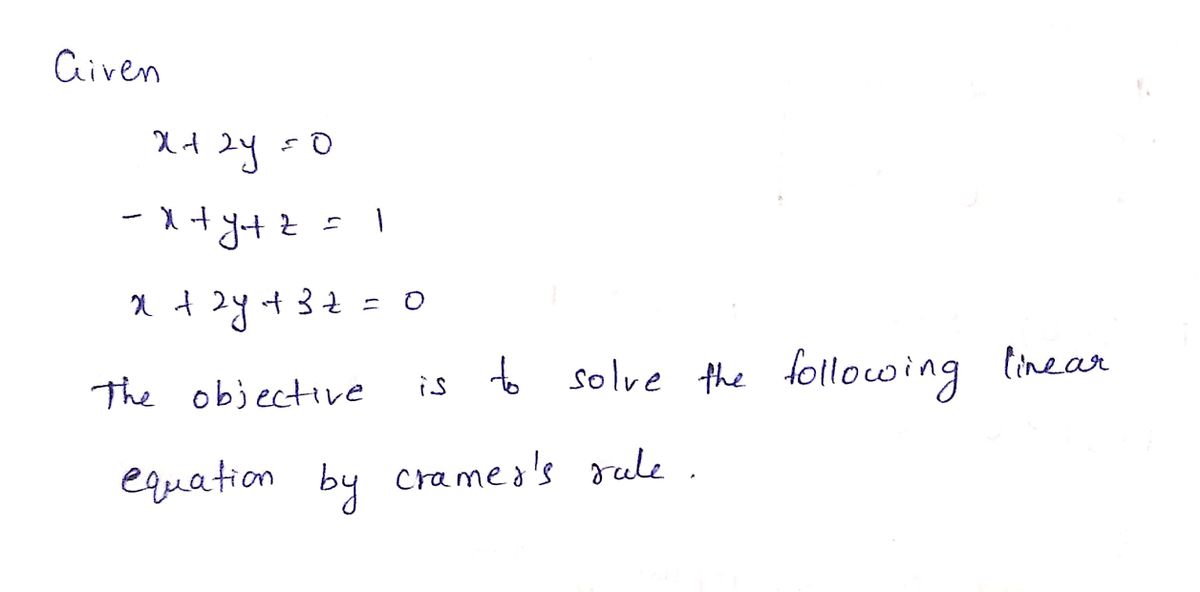 Given
x + 2y = 0
- x + y + z = 1
x + 2y + 3z = 0
The objective is to solve the following linear
equation by cramer's rule.